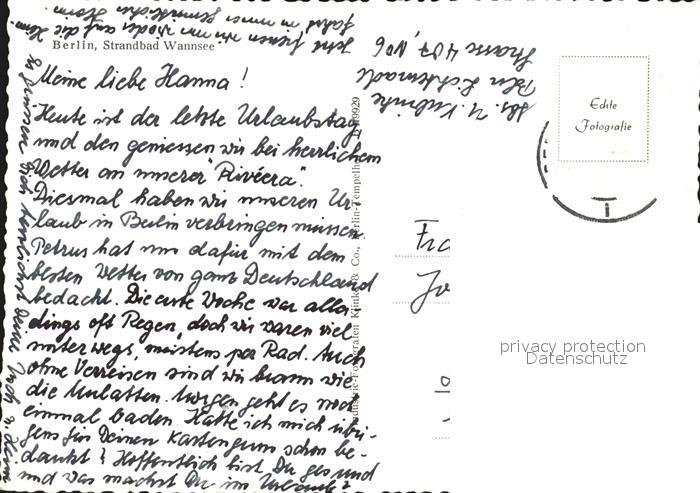 Berlin, Strandbad Wannsee
Meine liebe Hanna!
Heute ist der letzte Urlaubstag
und den geniessen wir bei herrlichem
Wetter an unserer "Riviera".
Diesmal haben wir unseren Ur-
laub in Berlin verbringen müssen
Petrus hat uns dafür mit dem
besten Wetter von ganz Deutschland
bedacht. Die erste Woche war aller
dings oft Regen, doch wir waren viel
unterwegs, meistens per Rad. Auch
ohne Verreisen sind wir braun wie
die Mulatten. Morgen geht es noch
einmal baden. Hatte ich mich übri-
gens für Deinen Kartengruss schon be-
dankt? Hoffentlich bist Du gesund
und was machst Du im Urlaub?
Jetzt freuen wir uns wieder auf die
Abs. U.
Bln Lichtenrade
Strasse 407, No 6
Klinke & Co., Berlin-Tempelhof
Echte
Fotografie
Fra
Jo
privacy protection
Datenschutz